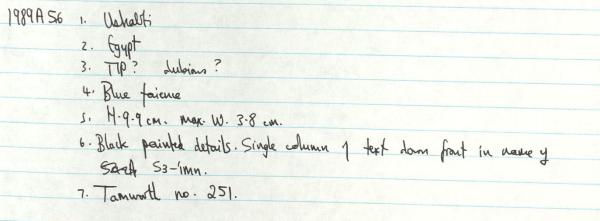 1989A56 1. Ushabti
2. Egypt
3. TIP? dubious?
4. Blue faience
5. H. 9.9 cm. max. W. 3.8 cm.
6. Black painted details. Single column of text down front in name of
S3-imn.
7. Tamworth no. 251.